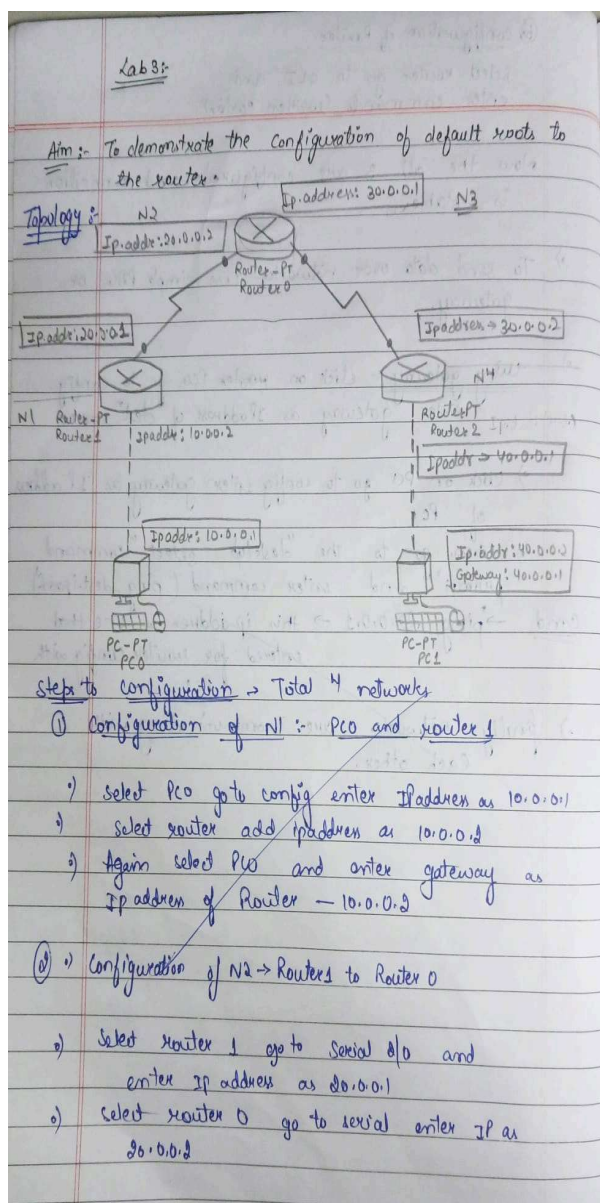 Lab 3:-
Aim :- To demonstrate the configuration of default roots to
the router.
Ip.address: 30.0.0.1
N3
Topology :-
N2
Ip.addr:20.0.0.2
Router-PT
Router 0
Ip.addr:20.0.0.1
Ipaddress→30.0.0.2
N1
Router-PT
Router 1
Ipaddr: 10.0.0.2
N4
Router PT
Router 2
Ipaddr → 40.0.0.1
Ipaddr: 10.0.0.1
Ip.addr:40.0.0.2
Gateway: 40.0.0.1
PC-PT
PC0
PC-PT
PC1
Steps to configuration → Total 4 networks
① Configuration of N1 :- PC0 and router 1
Select PC0 go to config enter IPaddress as 10.0.0.1
Select router add ipaddress as 10.0.0.2
Again select PC0 and enter gateway as
Ip address of Router — 10.0.0.2
② Configuration of N2 → Router1 to Router 0
Select router 1 go to Serial 2/0 and
enter IP address as 20.0.0.1
select router 0 go to serial enter IP as
20.0.0.2